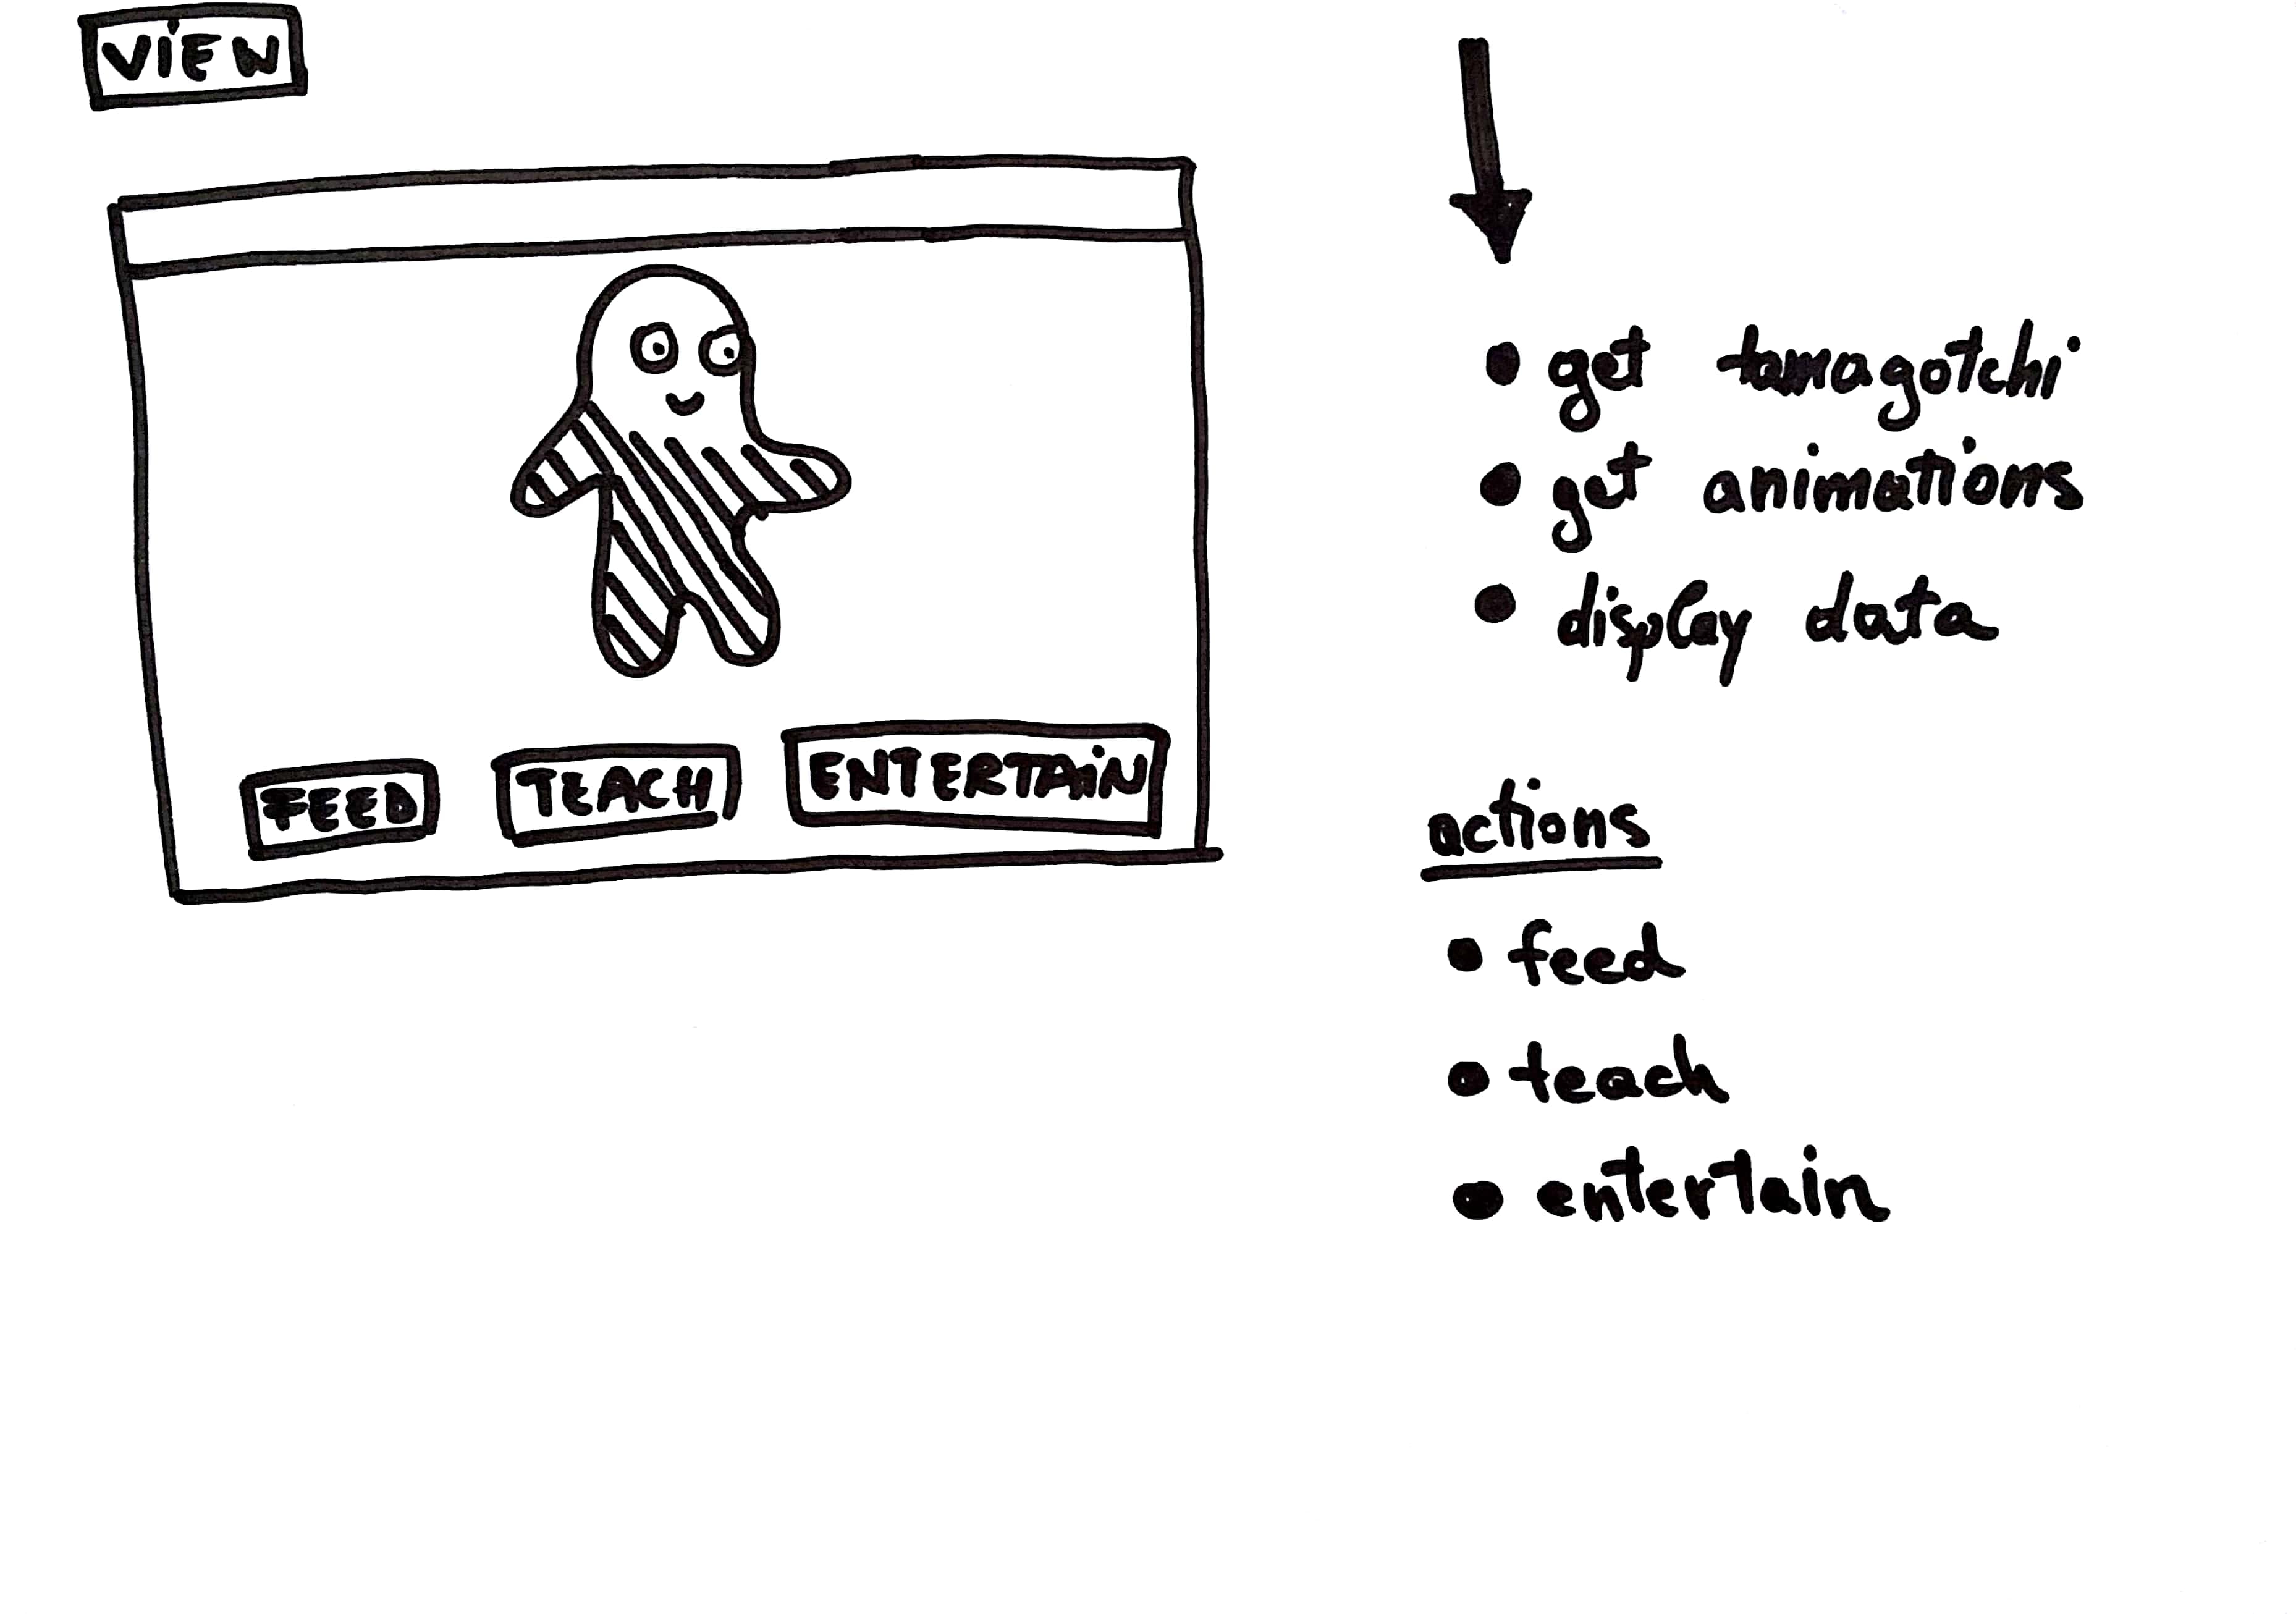 ViEW
FEED
TEACH
ENTERTAiN
• get tamagotchi
• get animations
• display data
actions
• feed
• teach
• entertain